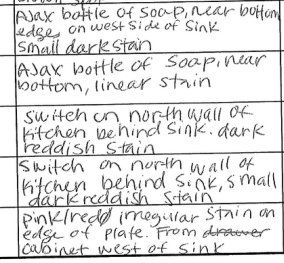 AJax bottle of soap, near bottom
edge, on west side of sink
small dark stain
AJax bottle of soap, near
bottom, linear stain
switch on north wall of
kitchen behind sink. dark
reddish stain
switch on north wall of
kitchen behind sink, small
dark reddish stain
pink/redd irregular stain on
edge of plate. From drawer
cabinet west of sink